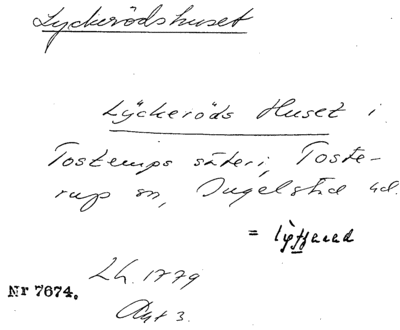 Lyckerödshuset
Lÿckeröds Huset i
Tosterups säteri, Toste-
rup sn, Ingelstad hd.
=
Lh. 1779
Nr 7674.
Akt 3.